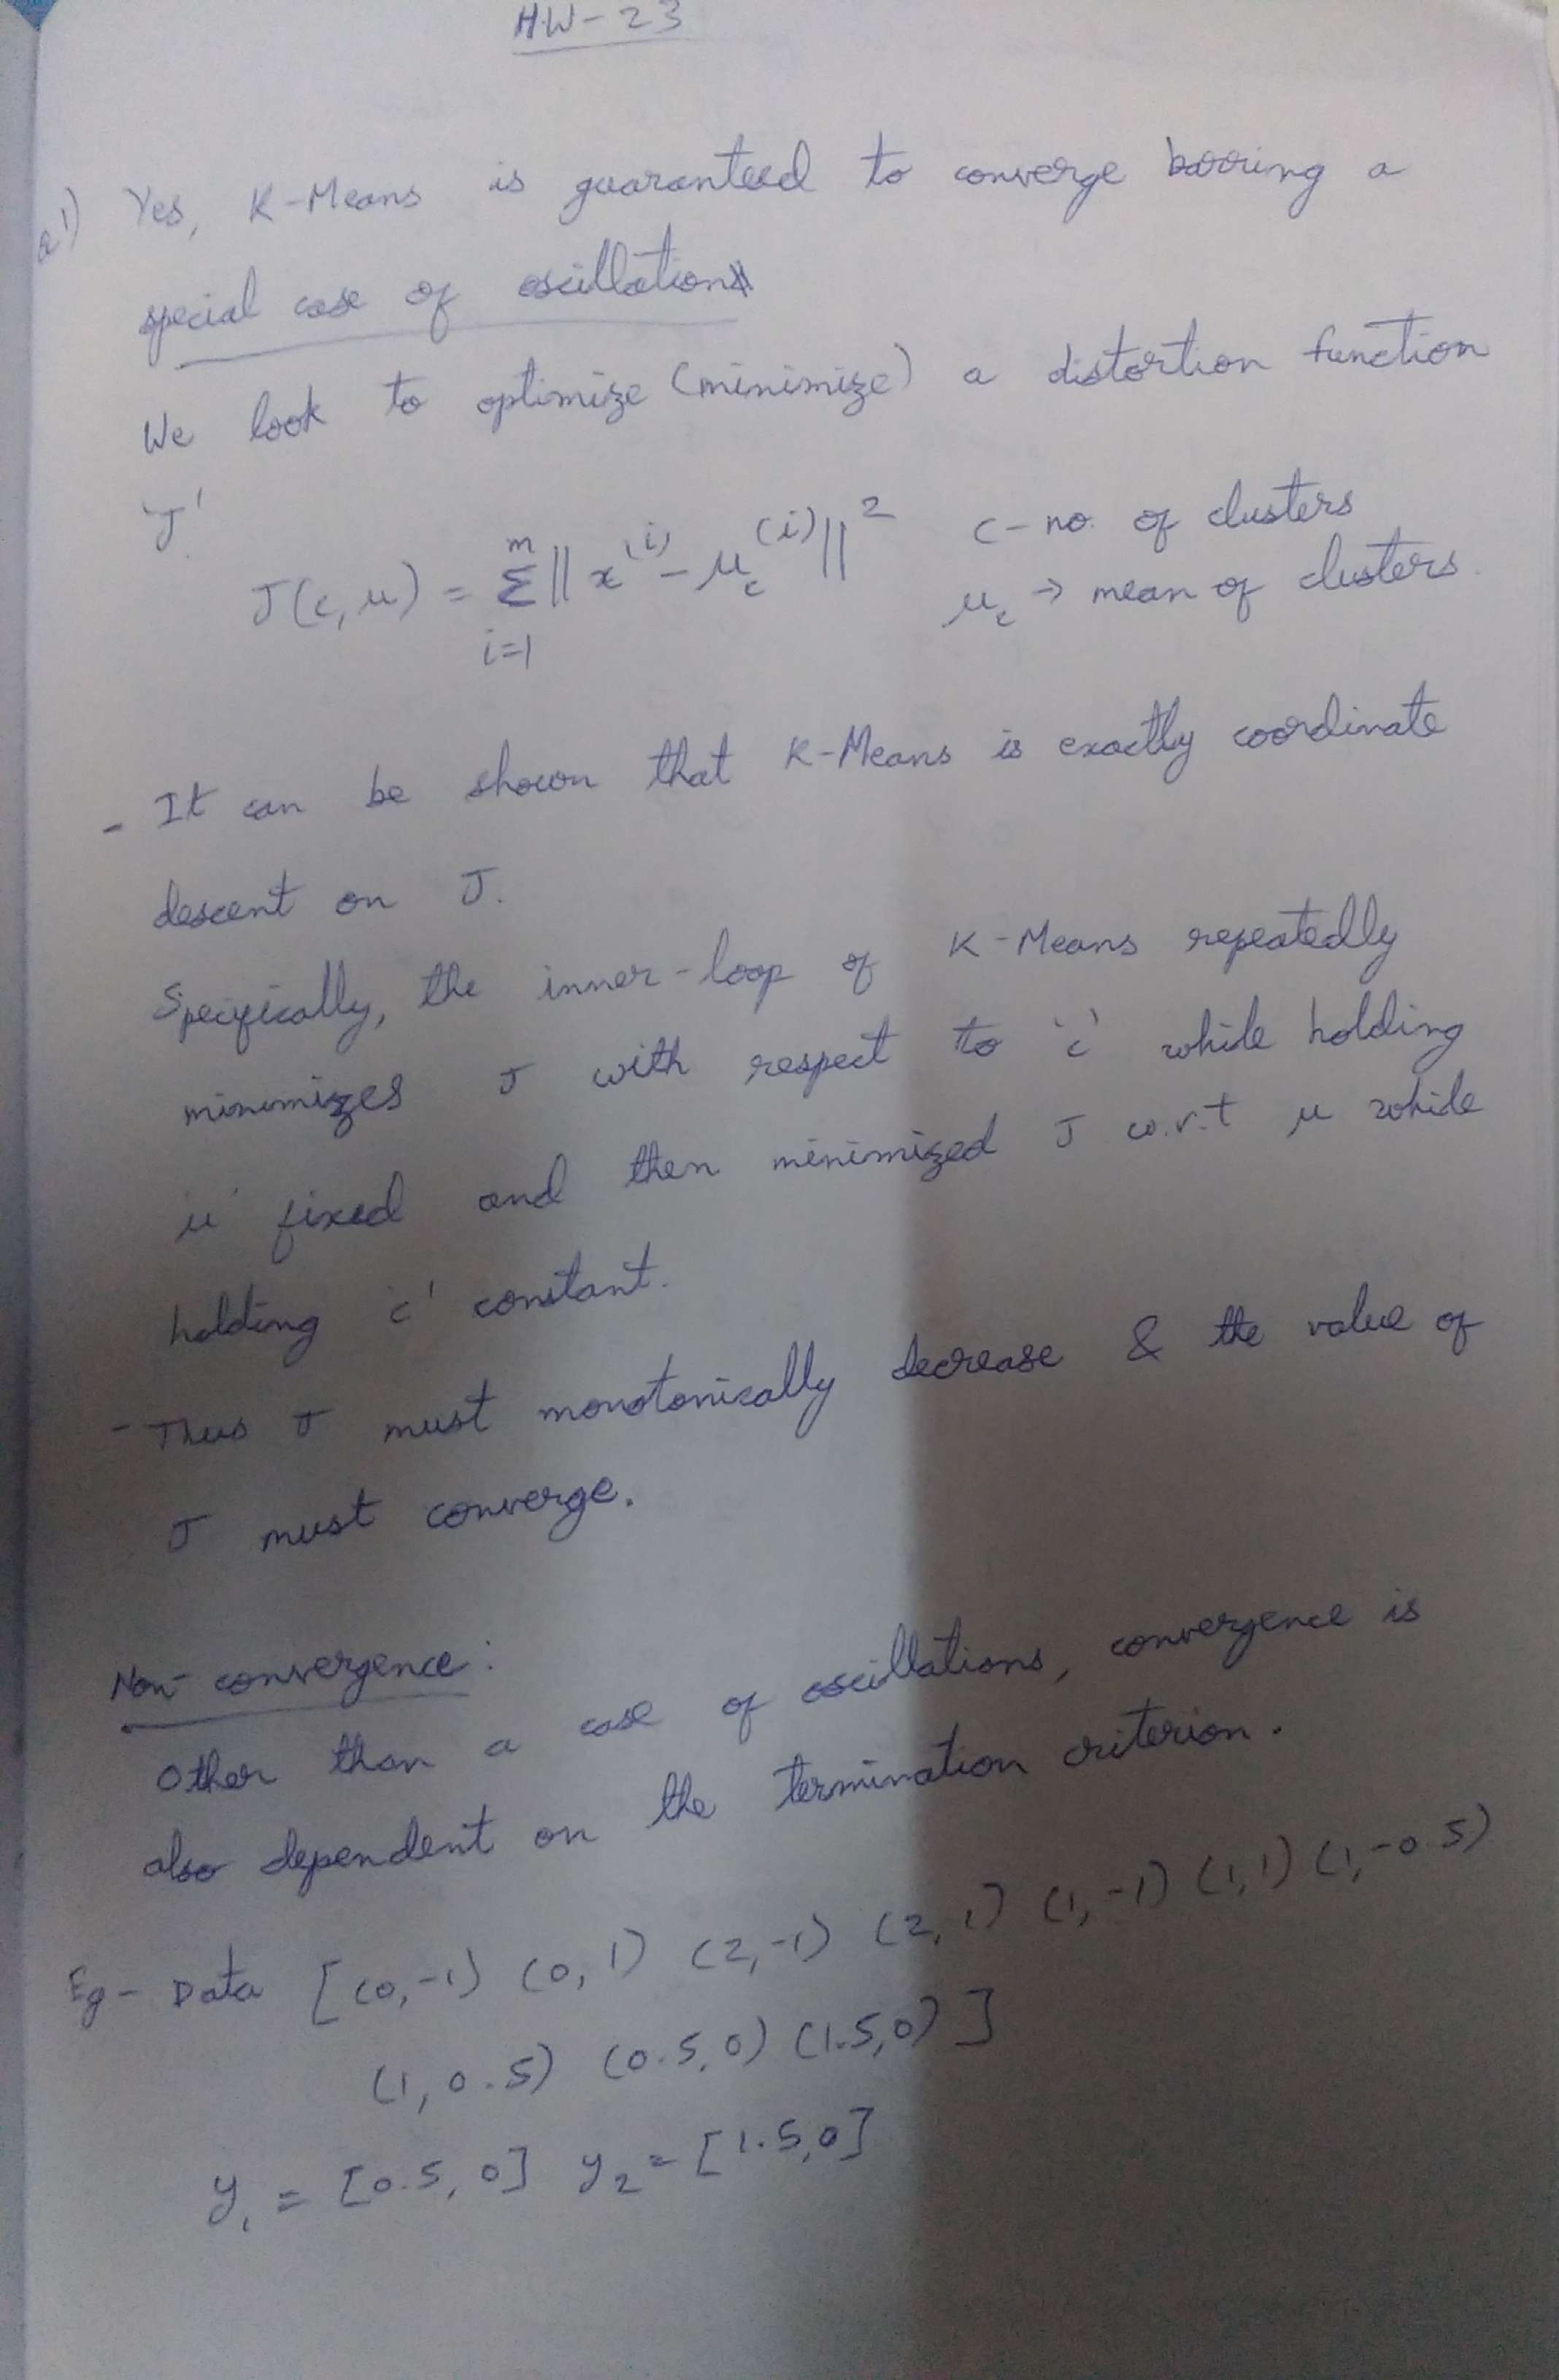 HW-23
Q1) Yes, K-Means is guaranteed to converge barring a
special case of oscillation
We look to optimize (minimize) a distortion function
'J'
J(c, μ) = Σ_{i=1}^{m} || x^{(i)} - μ_c^{(i)} ||^2 c - no. of clusters
μ_c → mean of clusters.
- It can be shown that K-Means is exactly coordinate
descent on J.
Specifically, the inner-loop of K-Means repeatedly
minimizes J with respect to 'c' while holding
'μ' fixed and then minimized J w.r.t μ while
holding 'c' constant.
- Thus J must monotonically decrease & the value of
J must converge.
Non-convergence:
Other than a case of oscillations, convergence is
also dependent on the termination criterion.
Eg - Data [(0,-1) (0,1) (2,-1) (2,1) (1,-1) (1,1) (1,-0.5)
(1,0.5) (0.5,0) (1.5,0)]
y_1 = [0.5, 0] y_2 = [1.5,0]